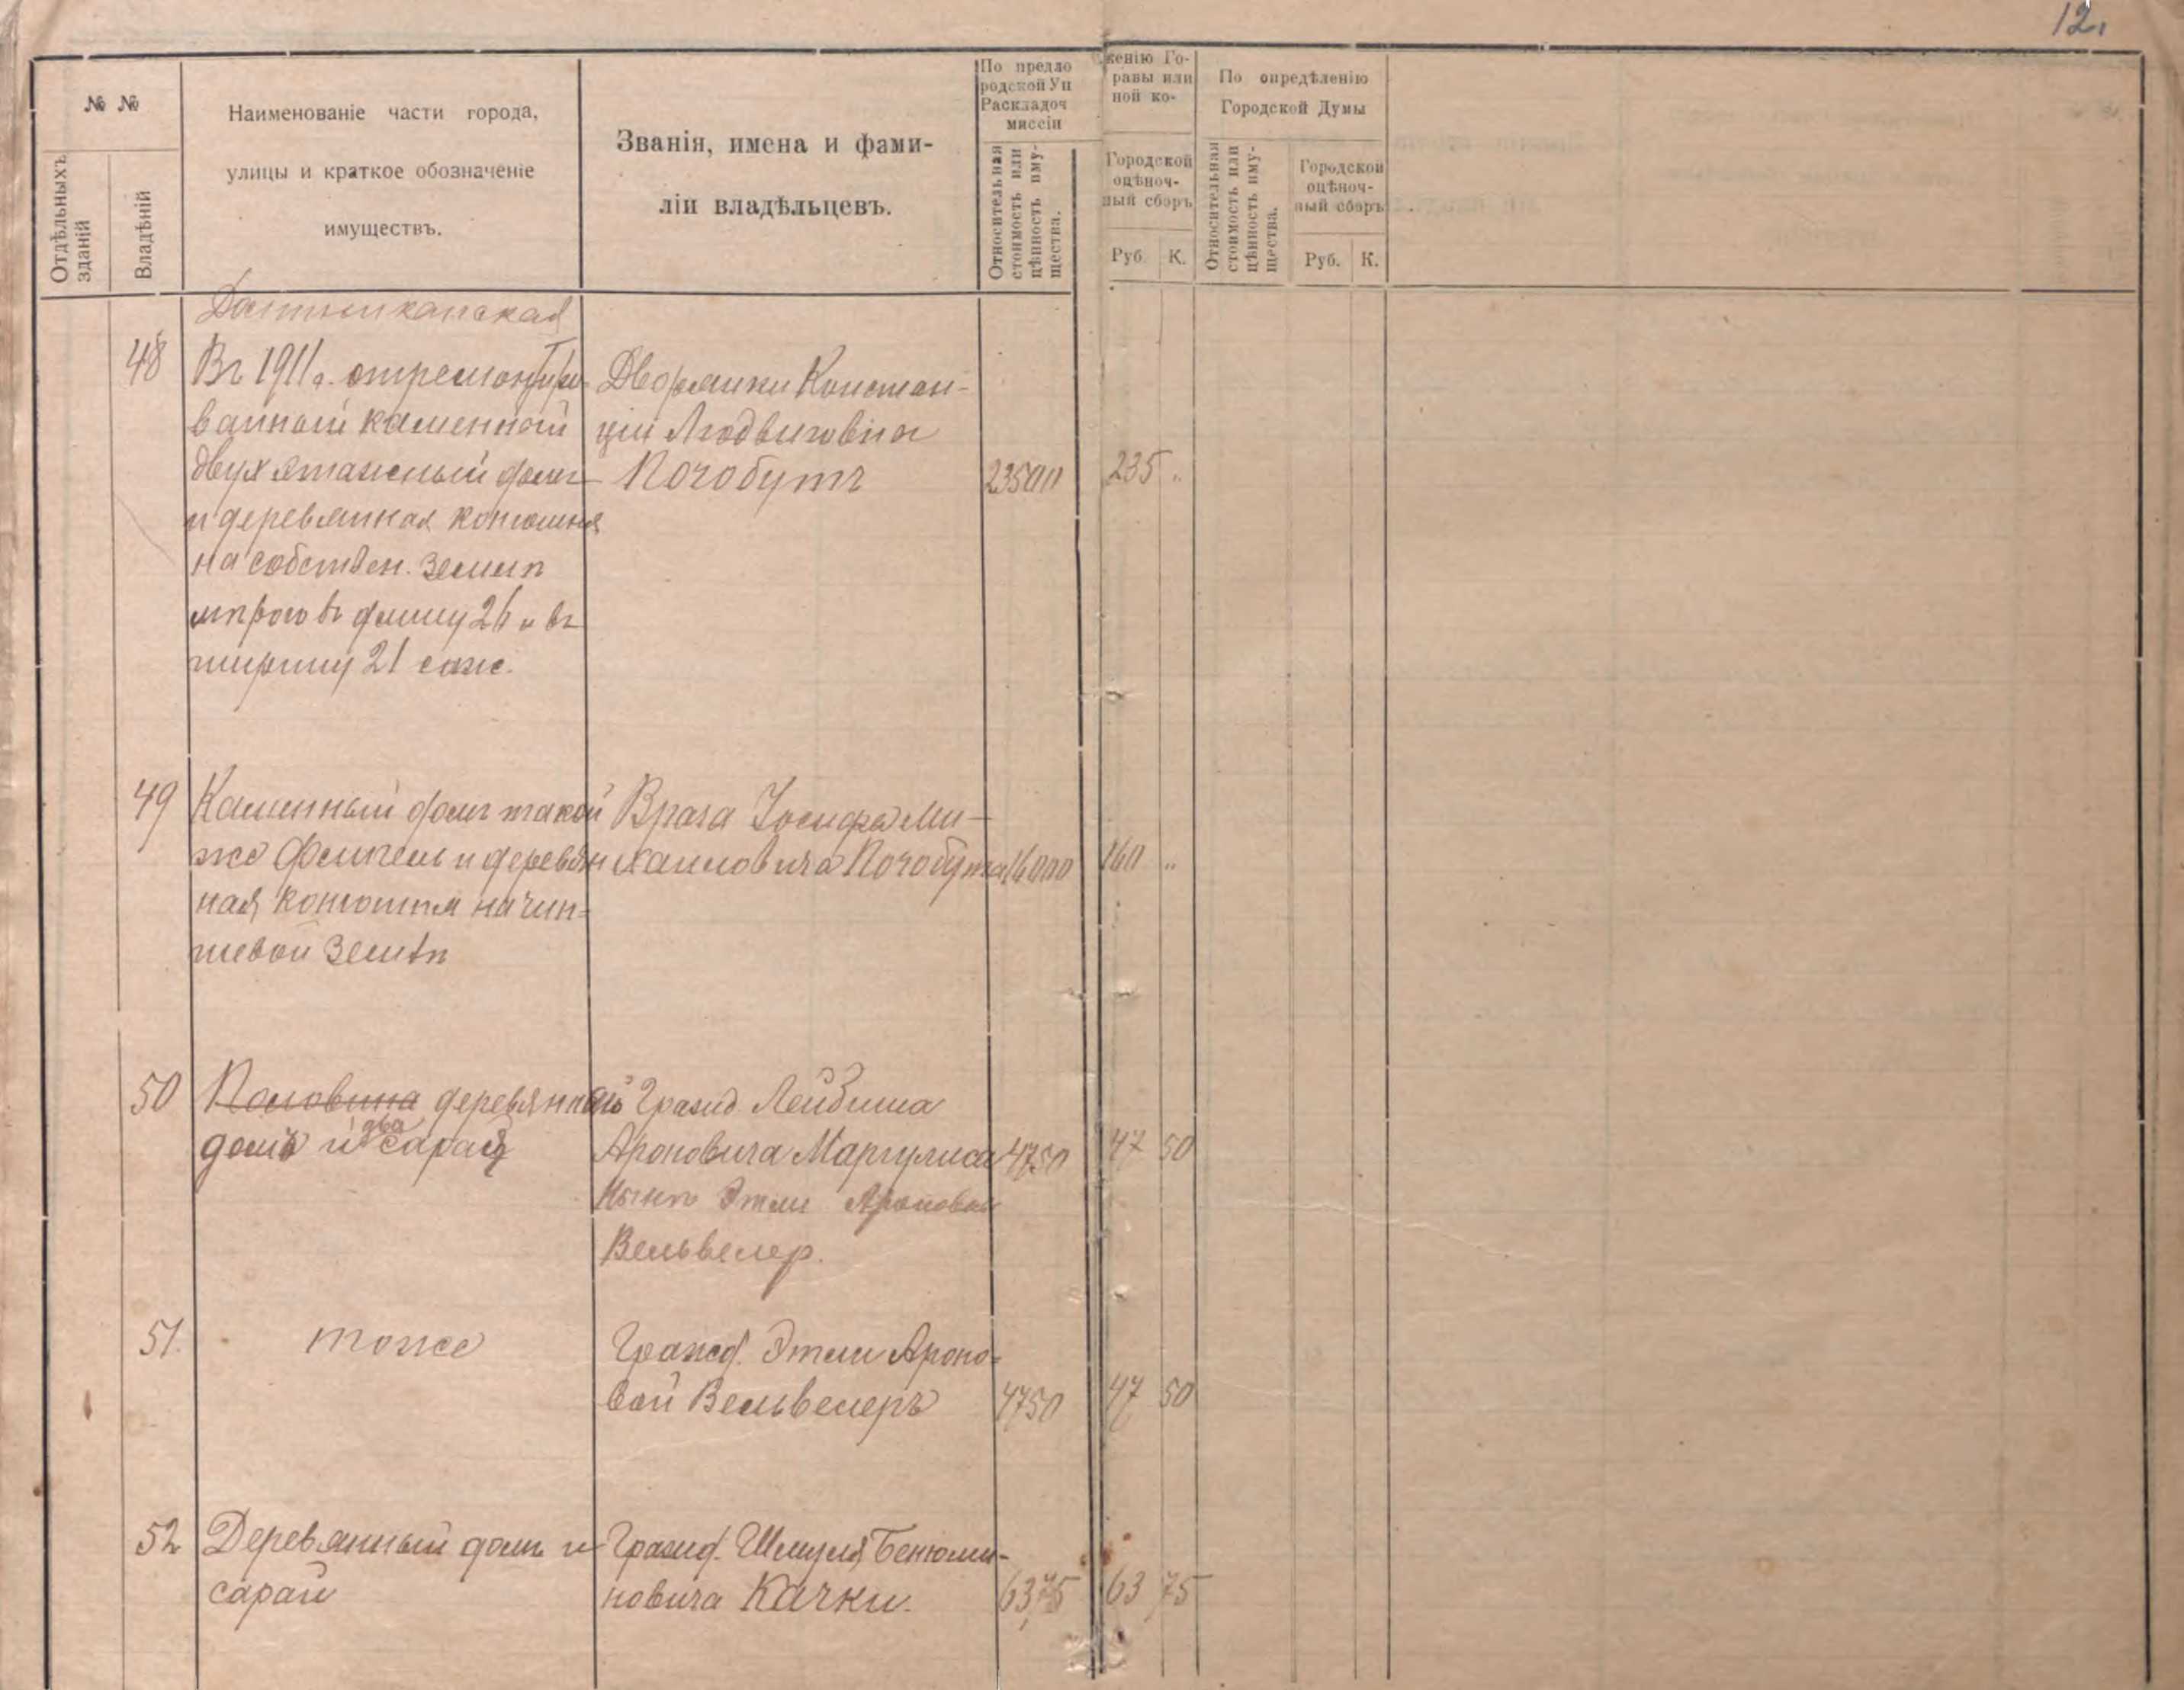 12.
№ №
Отдѣльныхъ зданій
Владѣній
Наименованіе части города,
улицы и краткое обозначеніе
имуществъ.
Званія, имена и фами-
ліи владѣльцевъ.
По предло
родской Уп
Раскладоч
миссіи
женію Го-
равы или
ной ко-
Относительная
стоимость или
цѣнность иму-
щества.
Городской
оцѣноч-
ный сборъ
Руб. К.
По опредѣленію
Городской Думы
Относительная
стоимость или
цѣнность иму-
щества.
Городской
оцѣноч-
ный сборъ
Руб. К.
48
Въ 1911 г. отремонтиро-
ванный каменный
двухэтажный домъ
и деревянная конюшня
на собствен. землѣ
мѣрою въ длину 26 и въ
ширину 21 саж.
Дворянки Констан-
ціи Людвиговны
Почобутъ
23500
235 "
49
Каменный домъ такой
же флигель и деревян
ная конюшня на чин-
шевой землѣ
Врача Іосифа Ми-
хайловича Почобута
16000
160 "
50
Половина деревянный
домъ и два сарая
Гражд. Лейбиша
Ароновича Маргулиса
Нынѣ Этли Ароновой
Вельвелер.
4750
47 50
51.
тоже
Гражд. Этли Ароно-
вой Вельвелеръ
4750
47 50
52
Деревянный домъ и
сарай
Гражд. Шмуля Бенюми-
новича Качки.
6375
63 75